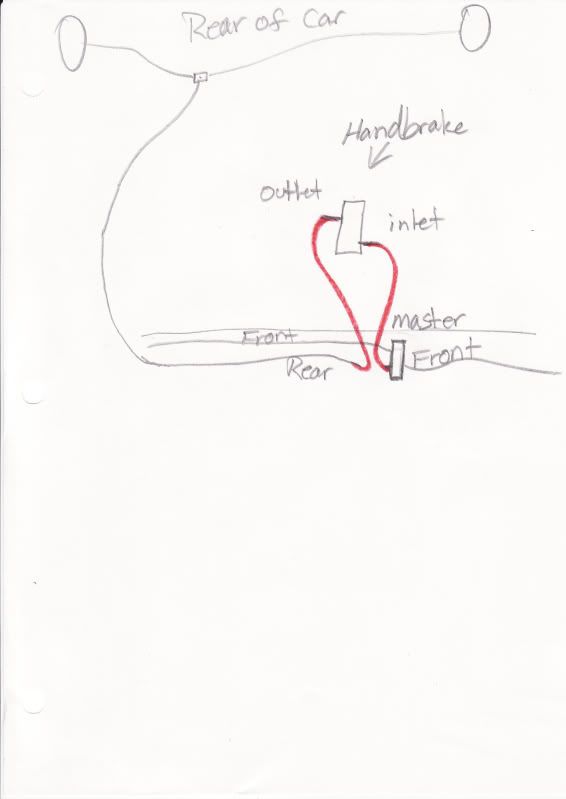 Rear of Car
Handbrake
outlet
inlet
master
Front
Front
Rear